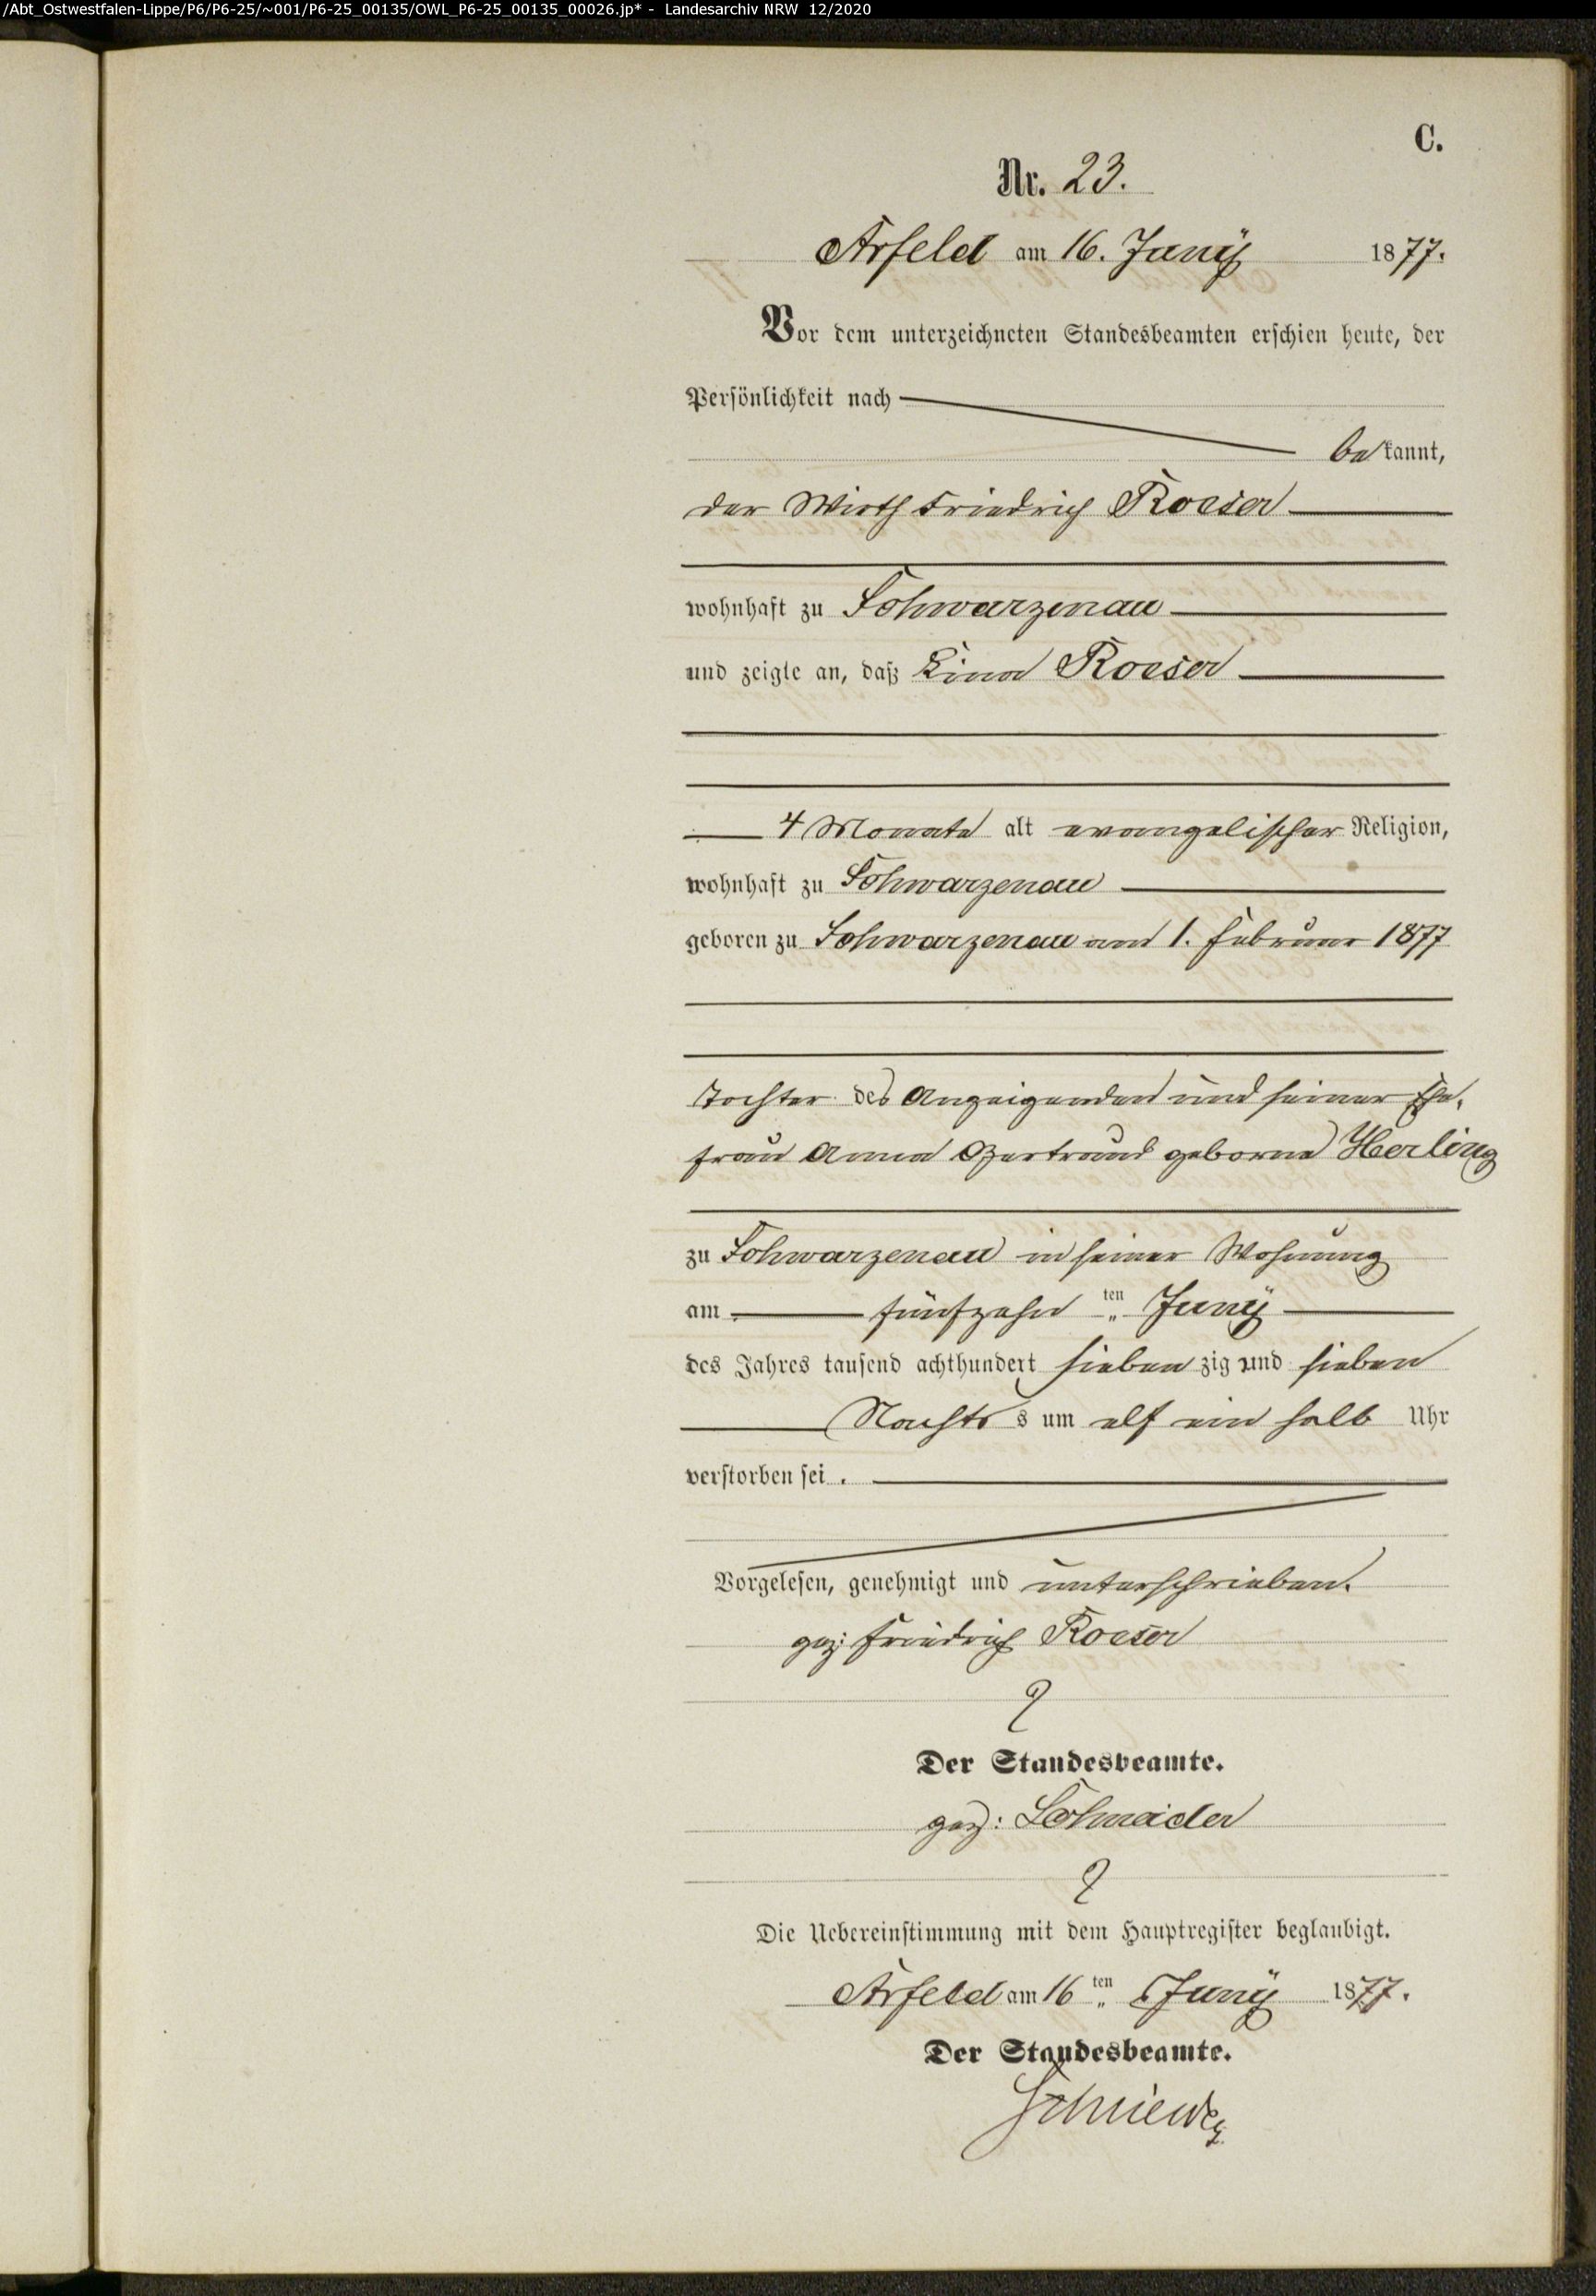 /Abt_Ostwestfalen-Lippe/P6/P6-25/~001/P6-25_00135/OWL_P6-25_00135_00026.jp* - Landesarchiv NRW 12/2020
C.
Nr. 23.
Arfeld am 16. Juny 1877.
Vor dem unterzeichneten Standesbeamten erschien heute, der
Persönlichkeit nach
bekannt,
der Wirth Friedrich Roeser
wohnhaft zu Schwarzenau
und zeigte an, daß Lina Roeser
4 Monate alt evangelischer Religion,
wohnhaft zu Schwarzenau
geboren zu Schwarzenau am 1. Februar 1877
Tochter des Anzeigenden und seiner Ehe-
frau Anna Gertraud geborne Herling
zu Schwarzenau in seiner Wohnung
am fünfzehn ten Juny
des Jahres tausend achthundert siebenzig und sieben
Nachts s um elf ein halb Uhr
verstorben sei.
Vorgelesen, genehmigt und unterschrieben.
gez: Friedrich Roeser
Der Standesbeamte.
gez: Schneider
Die Uebereinstimmung mit dem Hauptregister beglaubigt.
Arfeld am 16 ten Juny 1877.
Der Standesbeamte.
Schneider